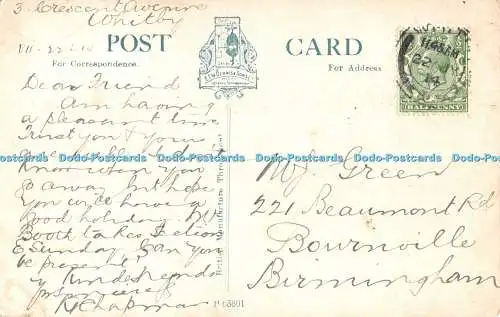 3. Crescent Avenue
Whitby
VII-22-14
POST CARD
For Correspondence.
For Address
Dear Friend
Am having
a pleasant time
Trust you & yours
are well
Know when you
go away but hope
you will have a
good holiday.
Booth takes
Sunday. Can you
be present
Kindest regards
yrs sincerely
R Chapman
British Manufacture Throughout
P 63801
22
14
HALFPENNY
Mr Green
221 Beaumont Rd
Bournville
Birmingham
Dodo-Postcards Dodo-Postcards Dodo-Postcards Dodo-Postcards Dodo-Postcards Dodo-Postcards